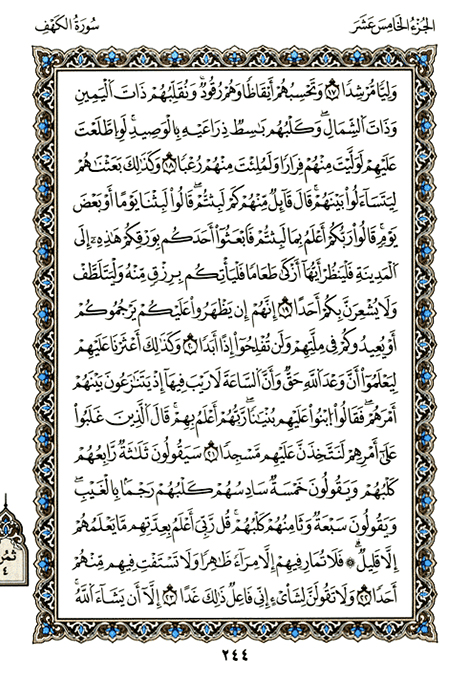 الجزء الخامس عشر
سورة الكهف
وَلِيًّا مُّرْشِدًا ١٧ وَتَحْسَبُهُمْ أَيْقَاظًا وَهُمْ رُقُودٌ ۚ وَنُقَلِّبُهُمْ ذَاتَ الْيَمِينِ
وَذَاتَ الشِّمَالِ ۖ وَكَلْبُهُم بَاسِطٌ ذِرَاعَيْهِ بِالْوَصِيدِ ۚ لَوِ اطَّلَعْتَ
عَلَيْهِمْ لَوَلَّيْتَ مِنْهُمْ فِرَارًا وَلَمُلِئْتَ مِنْهُمْ رُعْبًا ١٨ وَكَذَٰلِكَ بَعَثْنَاهُمْ
لِيَتَسَاءَلُوا بَيْنَهُمْ ۚ قَالَ قَائِلٌ مِّنْهُمْ كَمْ لَبِثْتُمْ ۖ قَالُوا لَبِثْنَا يَوْمًا أَوْ بَعْضَ
يَوْمٍ ۚ قَالُوا رَبُّكُمْ أَعْلَمُ بِمَا لَبِثْتُمْ فَابْعَثُوا أَحَدَكُم بِوَرِقِكُمْ هَٰذِهِ إِلَى
الْمَدِينَةِ فَلْيَنظُرْ أَيُّهَا أَزْكَىٰ طَعَامًا فَلْيَأْتِكُم بِرِزْقٍ مِّنْهُ وَلْيَتَلَطَّفْ
وَلَا يُشْعِرَنَّ بِكُمْ أَحَدًا ١٩ إِنَّهُمْ إِن يَظْهَرُوا عَلَيْكُمْ يَرْجُمُوكُمْ
أَوْ يُعِيدُوكُمْ فِي مِلَّتِهِمْ وَلَن تُفْلِحُوا إِذًا أَبَدًا ٢٠ وَكَذَٰلِكَ أَعْثَرْنَا عَلَيْهِمْ
لِيَعْلَمُوا أَنَّ وَعْدَ اللَّهِ حَقٌّ وَأَنَّ السَّاعَةَ لَا رَيْبَ فِيهَا إِذْ يَتَنَازَعُونَ بَيْنَهُمْ
أَمْرَهُمْ ۖ فَقَالُوا ابْنُوا عَلَيْهِم بُنْيَانًا ۖ رَّبُّهُمْ أَعْلَمُ بِهِمْ ۚ قَالَ الَّذِينَ غَلَبُوا
عَلَىٰ أَمْرِهِمْ لَنَتَّخِذَنَّ عَلَيْهِم مَّسْجِدًا ٢١ سَيَقُولُونَ ثَلَاثَةٌ رَّابِعُهُمْ
كَلْبُهُمْ وَيَقُولُونَ خَمْسَةٌ سَادِسُهُمْ كَلْبُهُمْ رَجْمًا بِالْغَيْبِ ۖ
وَيَقُولُونَ سَبْعَةٌ وَثَامِنُهُمْ كَلْبُهُمْ ۚ قُل رَّبِّي أَعْلَمُ بِعِدَّتِهِم مَّا يَعْلَمُهُمْ
إِلَّا قَلِيلٌ ۗ ۞ فَلَا تُمَارِ فِيهِمْ إِلَّا مِرَاءً ظَاهِرًا وَلَا تَسْتَفْتِ فِيهِم مِّنْهُمْ
أَحَدًا ٢٢ وَلَا تَقُولَنَّ لِشَايْءٍ إِنِّي فَاعِلٌ ذَٰلِكَ غَدًا ٢٣ إِلَّا أَن يَشَاءَ اللَّهُ ۚ
ثمن
٤
٢٤٤